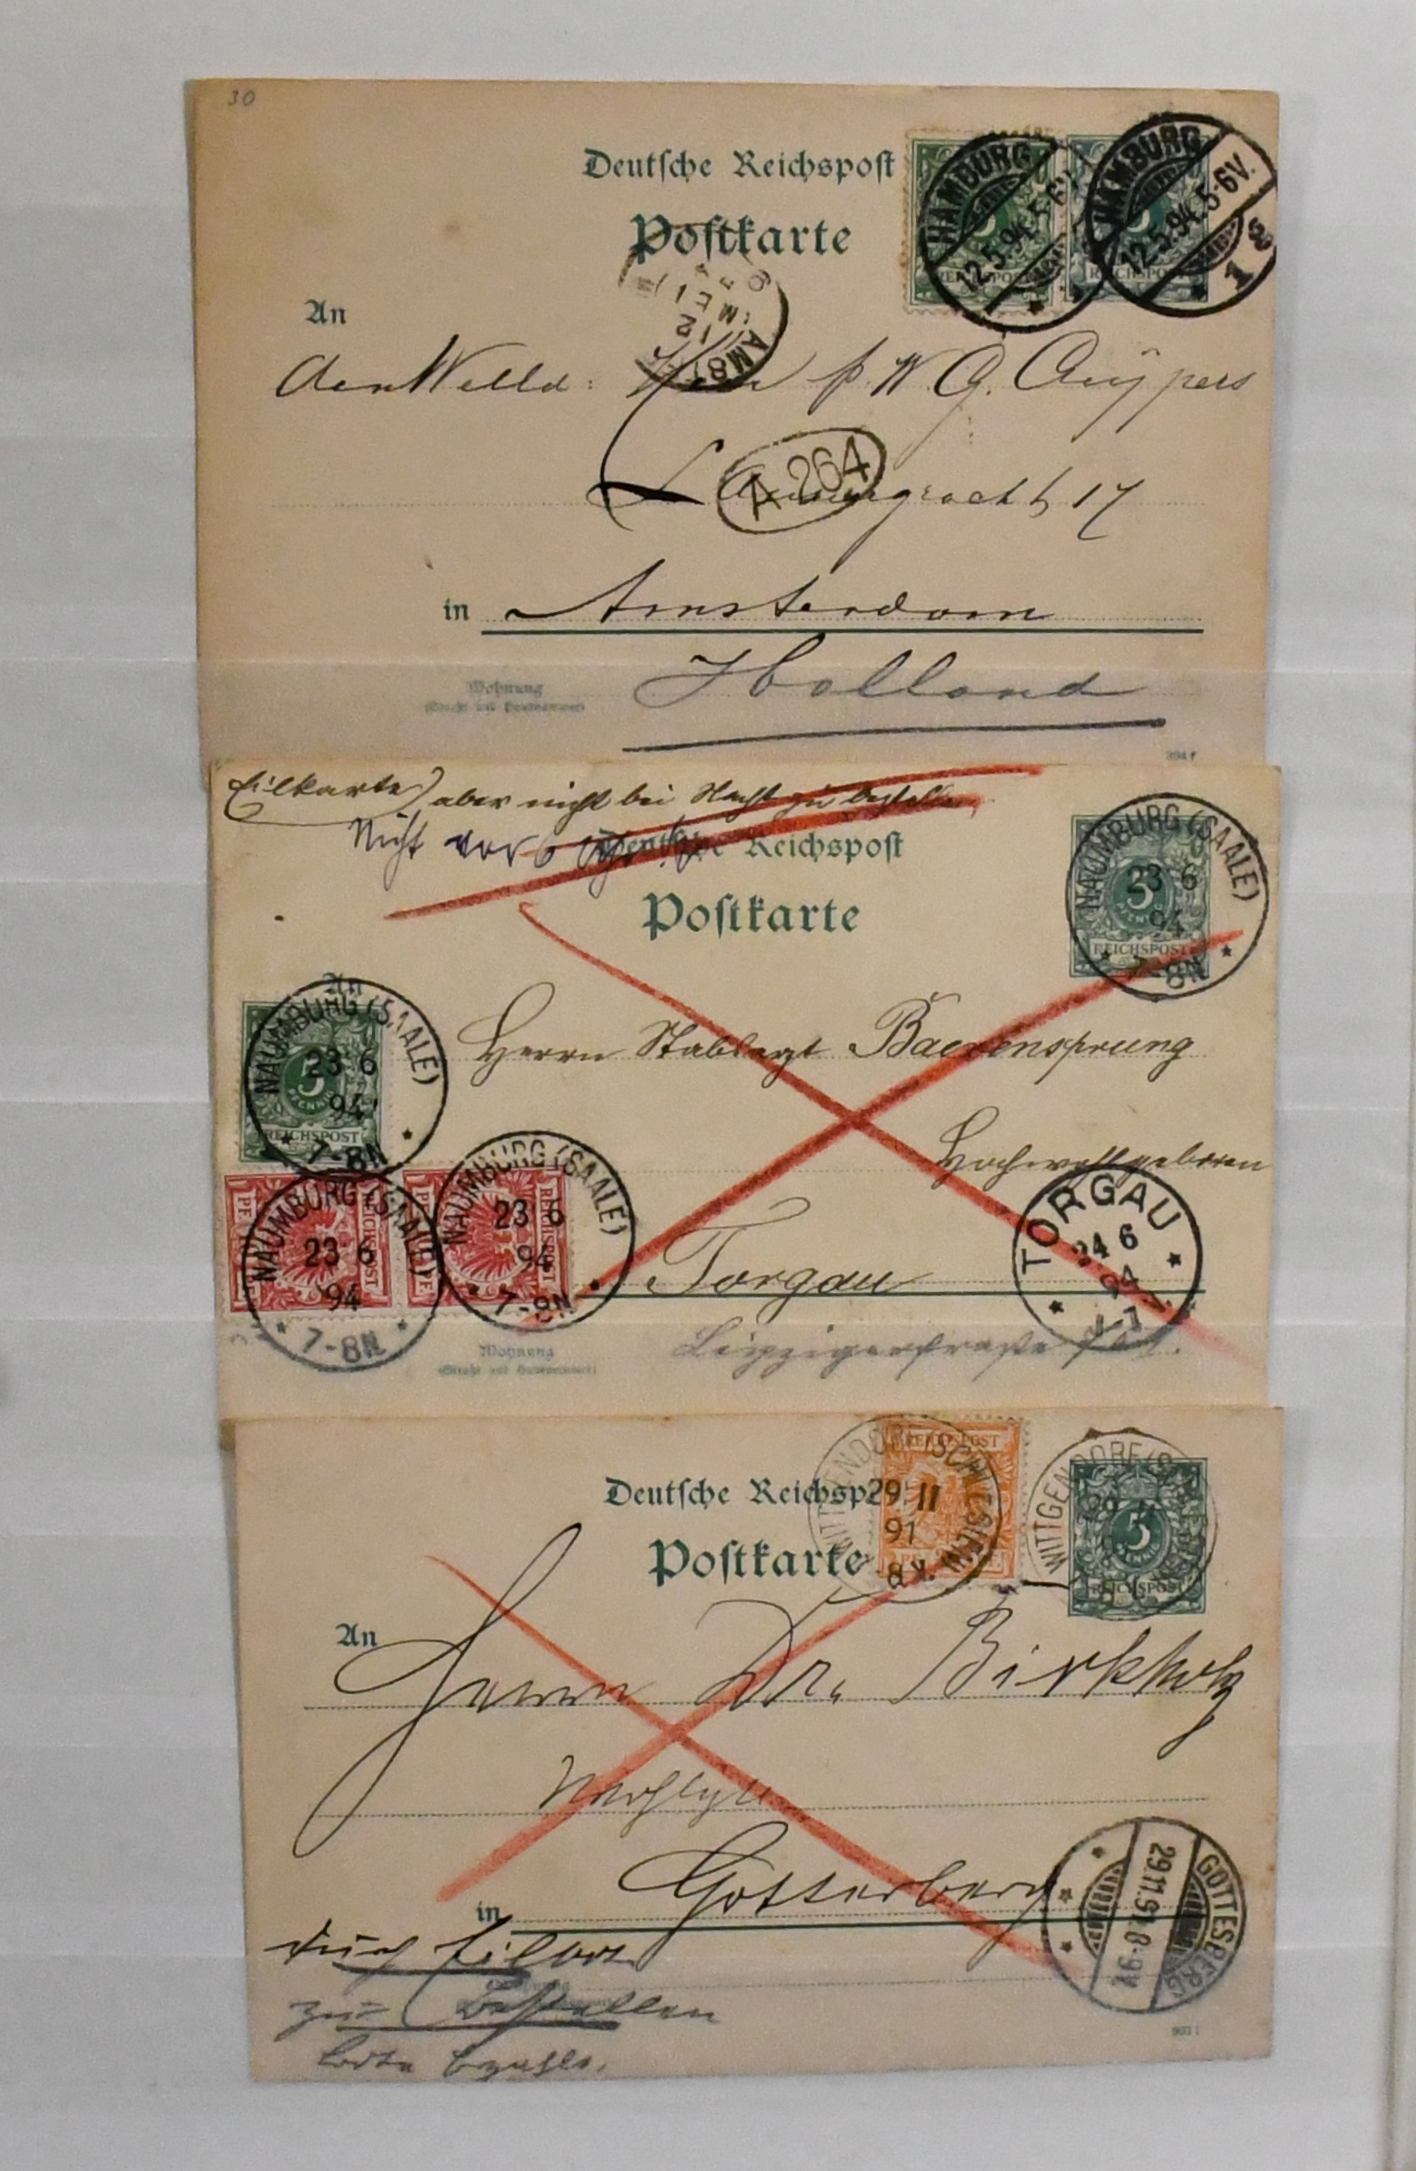 30
Deutsche Reichspost
Postkarte
HAMBURG
12.5.94.5-6V.
HAMBURG
12.5.94.5-6V.
1
REICHSPOST
An
den Herrn W. G. Cuijpers
A 264
gracht 17
in Amsterdam
Holland
Wohnung
(Straße und Hausnummer)
Eilkarte, aber nicht bei Nacht zu bestellen
Nicht vor 6
Deutsche Reichspost
Postkarte
NAUMBURG (SAALE)
23 6
94
7-8N
5
REICHSPOST
An
NAUMBURG (SAALE)
23 6
94
7-8N
5
PFENNIG
REICHSPOST
Herrn Stabsarzt Baerensprung
Hochwohlgeboren
NAUMBURG (SAALE)
23 6
94
7-8N
NAUMBURG (SAALE)
23 6
94
7-8N
REICHSPOST
Torgau
TORGAU
24 6
94
Leipzigerstraße
Wohnung
(Straße und Hausnummer)
Deutsche Reichsp
Postkarte
WITTGENDORF (SCHLESIEN)
29 11
91
REICHSPOST
WITTGENDORF (SCHLESIEN)
5
REICHSPOST
An
Herrn Dr. Birkholz
in Gottesberg
GOTTESBERG
29.11.91.8-9V.
durch Eilboten
zu bestellen
Bote bezahlt.